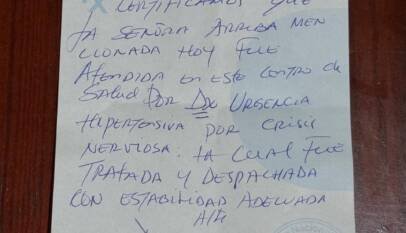 CERTIFICAMOS QUE
LA SEÑORA ARRIBA MEN
CIONADA HOY FUE
ATENDIDA EN ESTE CENTRO de
SALUD POR Dx URGENCIA
HIPERTENSIVA POR CRISIS
NERVIOSA. LA CUAL FUE
TRATADA Y DESPACHADA
CON ESTABILIDAD ADECUADA